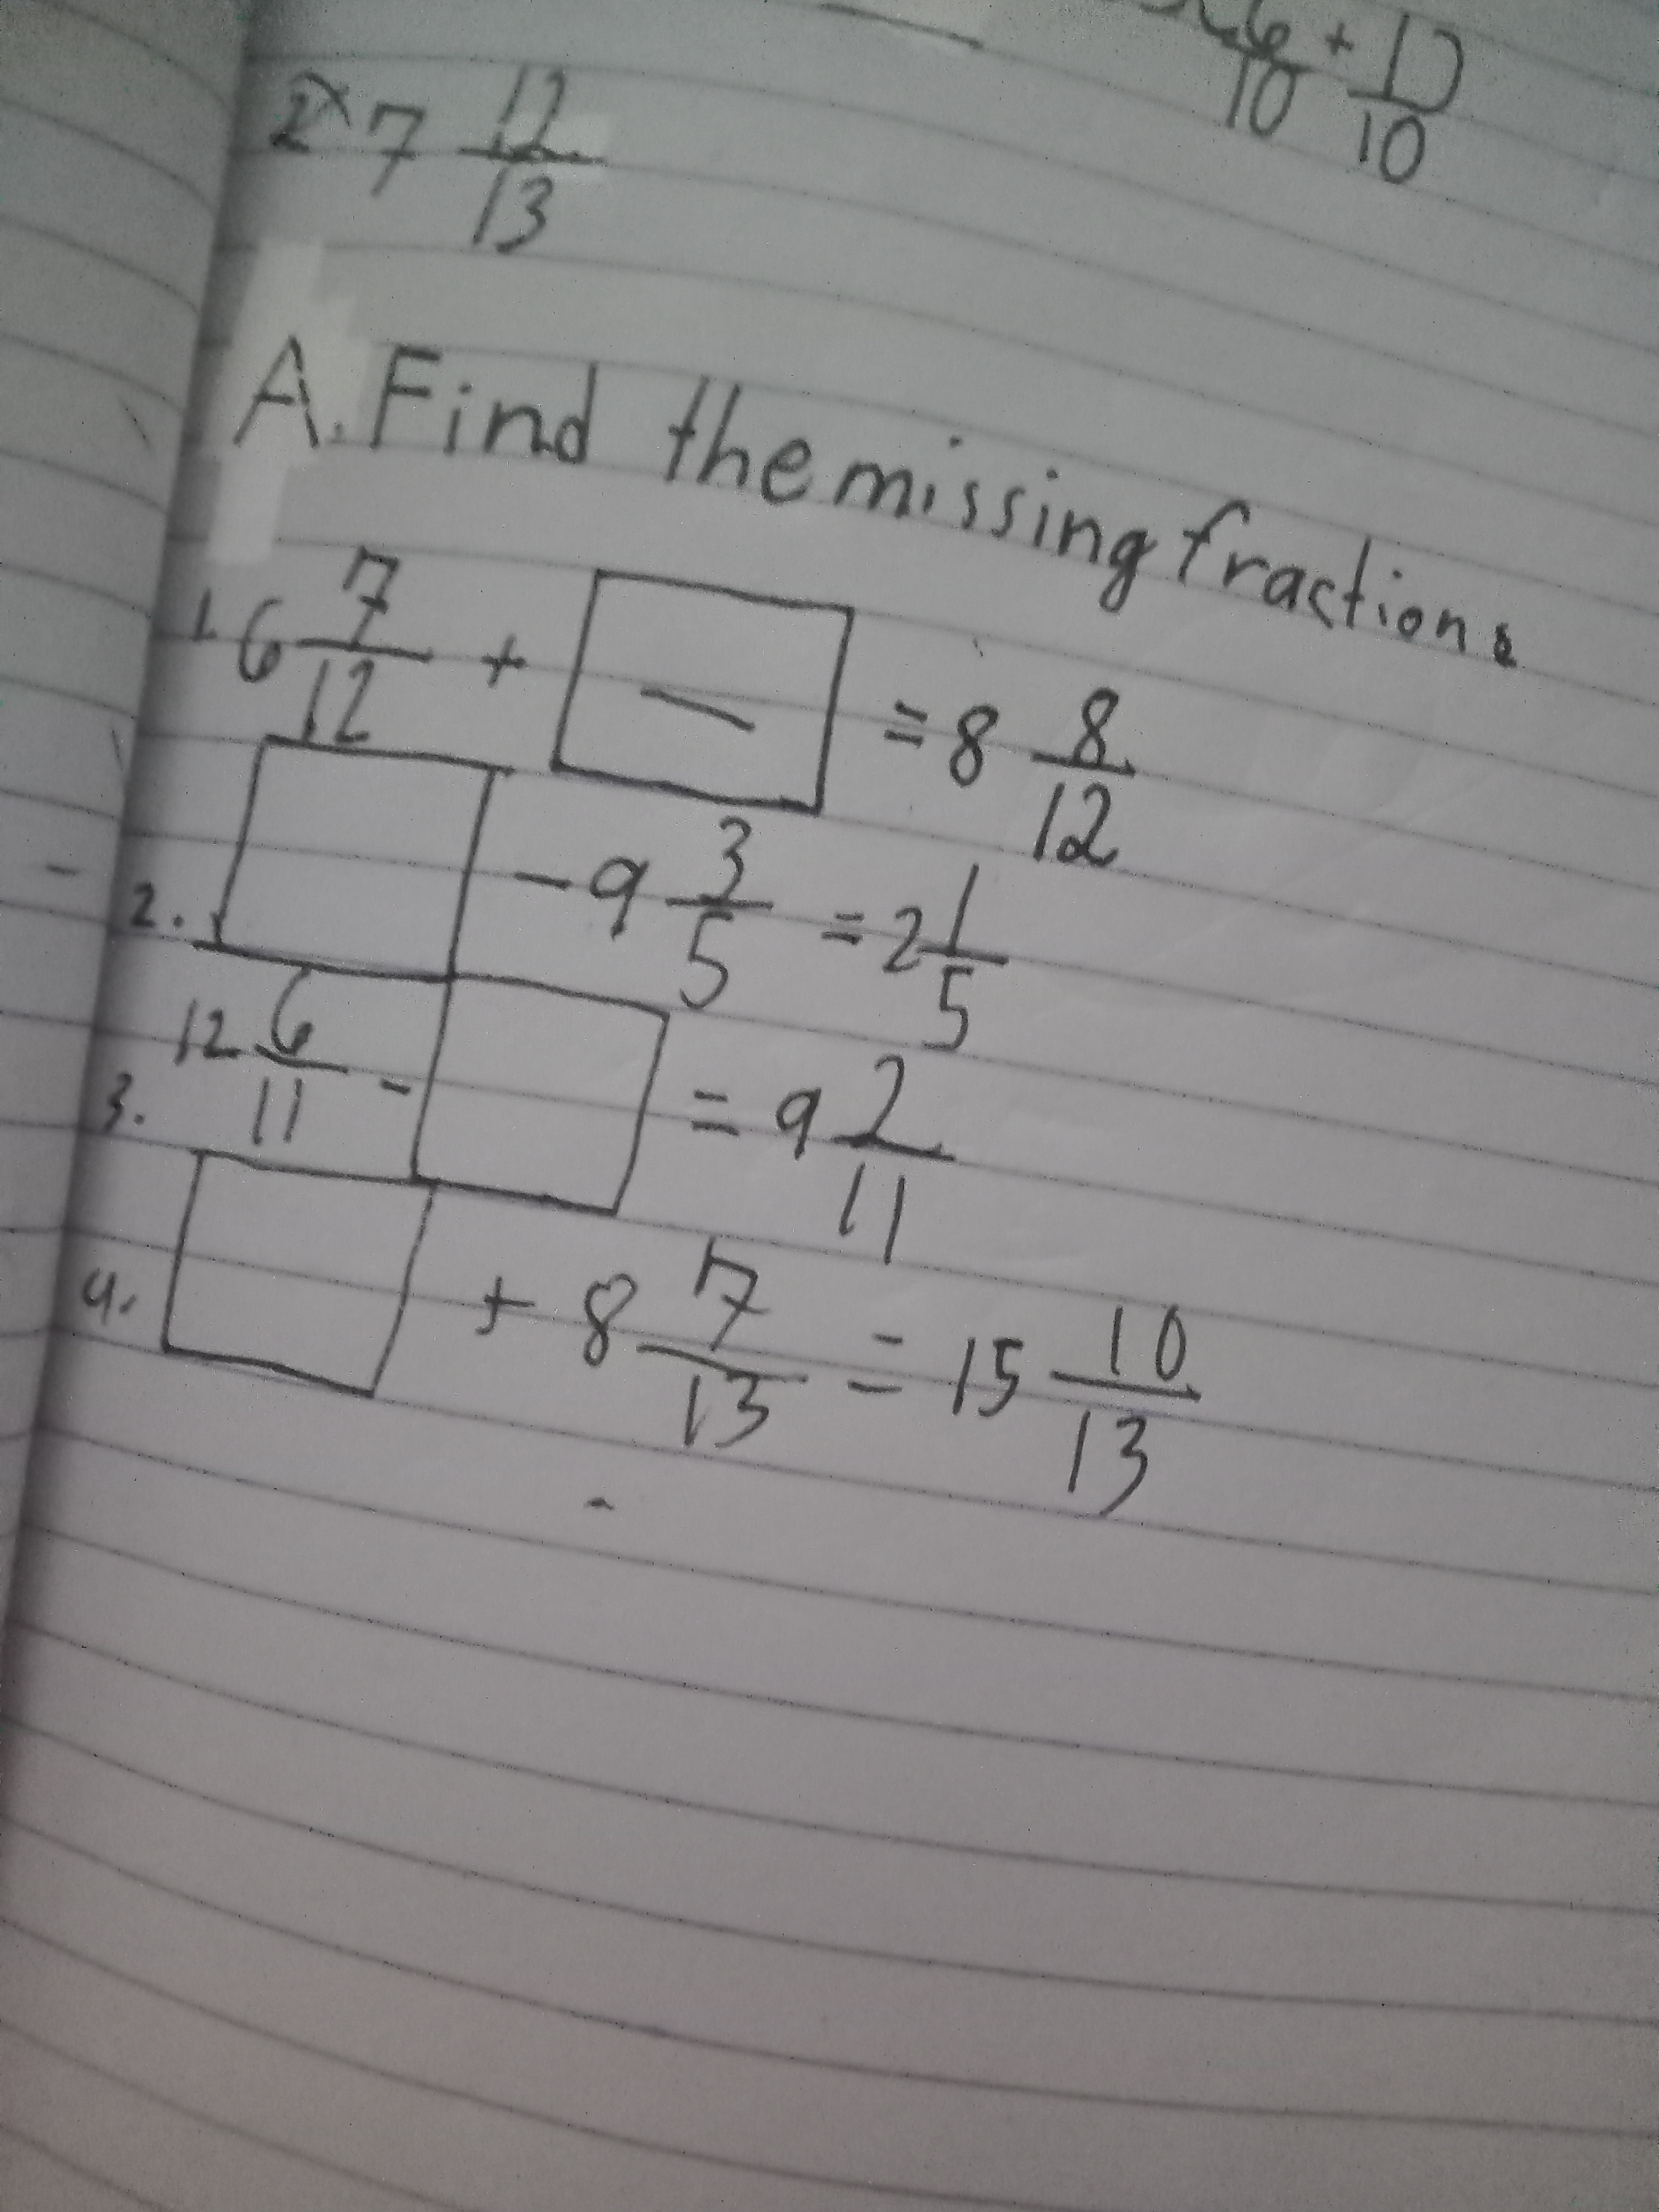 6/10 + 1/10
2 7 12/13
A. Find the missing fractions
1 6 7/12 + = 8 8/12
2. - 9 3/5 = 2 1/5
3. 12 6/11 - = 9 2/11
4. + 8 7/13 = 15 10/13